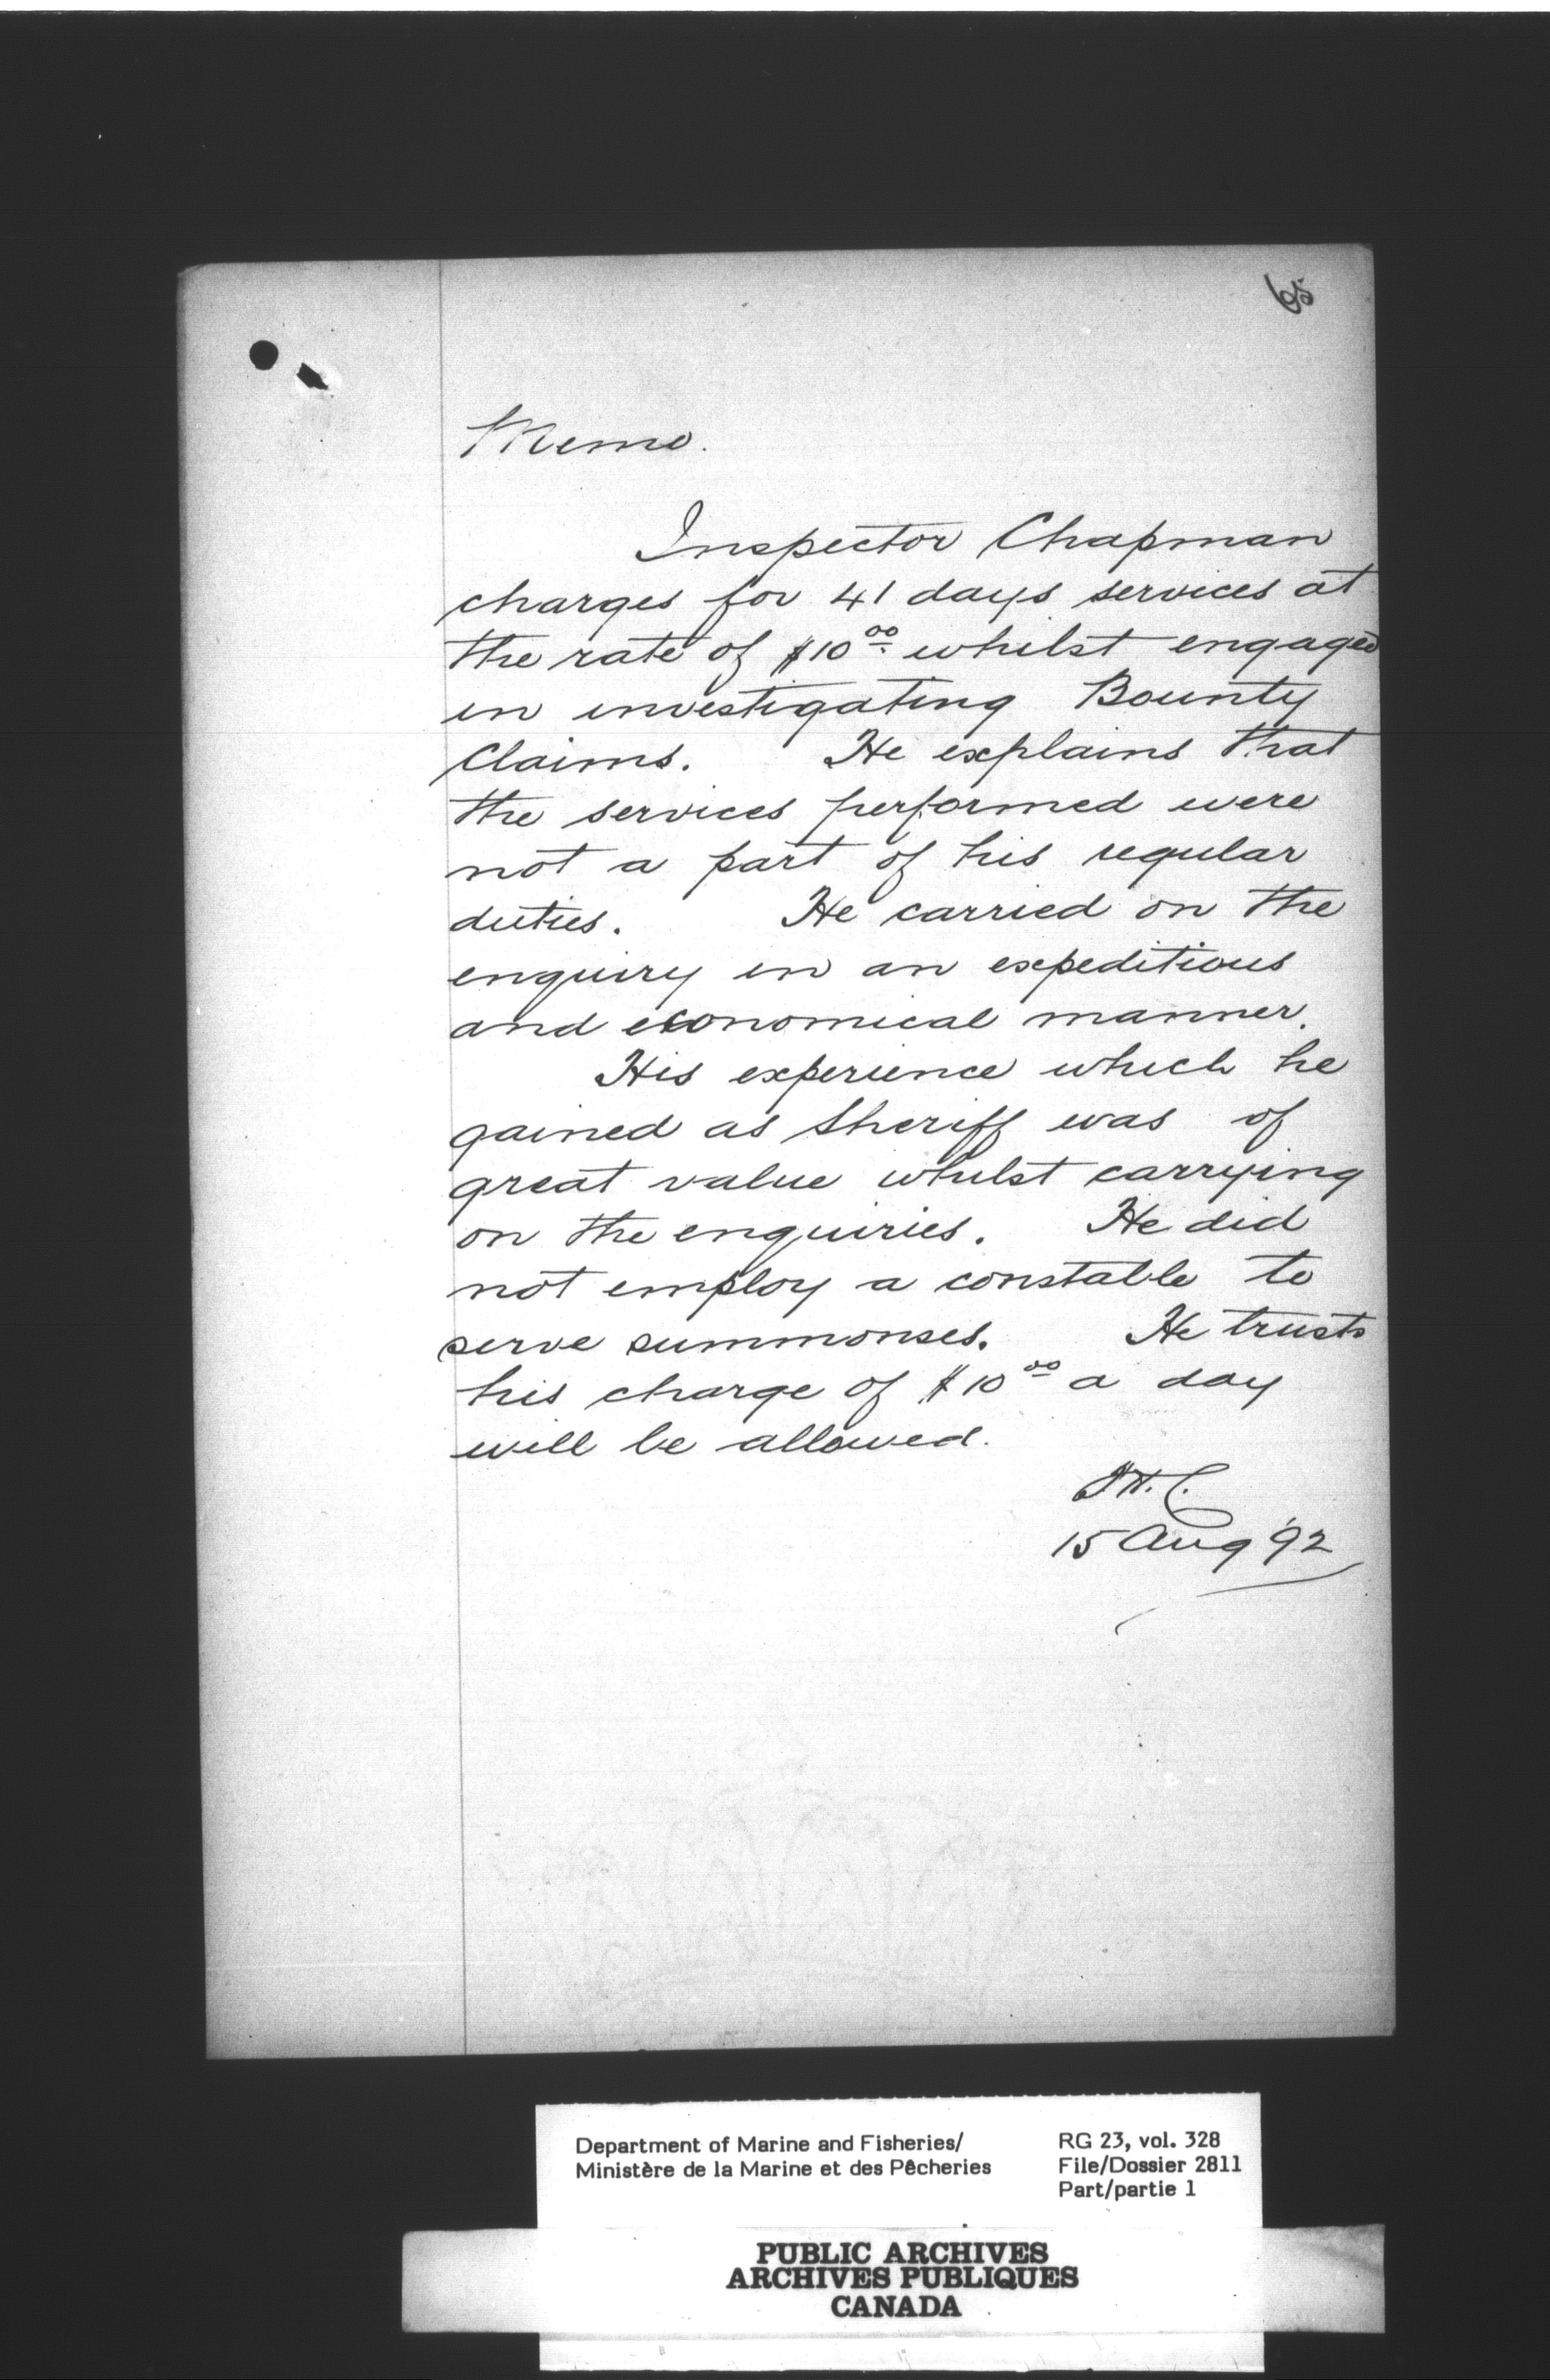 65
Memo.
Inspector Chapman
charges for 41 days services at
the rate of $10.00 whilst engaged
in investigating Bounty
Claims. He explains that
the services performed were
not a part of his regular
duties. He carried on the
enquiry in an expeditious
and economical manner.
His experience which he
gained as Sheriff was of
great value whilst carrying
on the enquiries. He did
not employ a constable to
serve summonses. He trusts
his charge of $10.00 a day
will be allowed.
15 Aug '92
Department of Marine and Fisheries/ RG 23, vol. 328
Ministère de la Marine et des Pêcheries File/Dossier 2811
Part/partie 1
PUBLIC ARCHIVES
ARCHIVES PUBLIQUES
CANADA